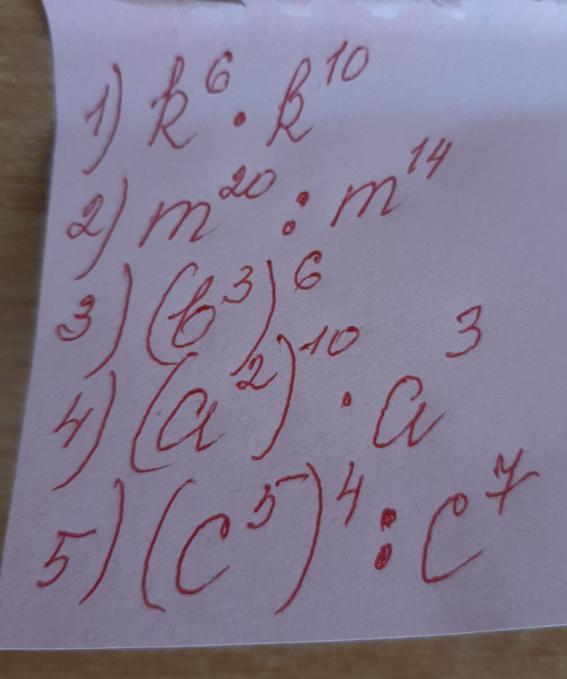 1) k⁶ · k¹⁰
2) m²⁰ : m¹⁴
3) (b³)⁶
4) (a²)¹⁰ · a³
5) (c⁵)⁴ : c⁷